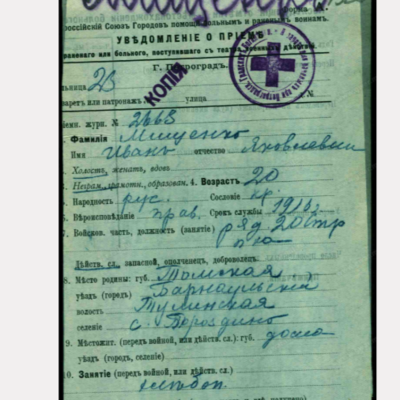 Мищенко
россійскій Союзъ Городовъ помощи больнымъ и раненымъ воинамъ.
УВѢДОМЛЕНІЕ О ПРІЕМѢ
раненаго или больного, поступившаго съ театра военныхъ дѣйствій
Г. Петроградъ.
КОПІЯ
льница 23
заретъ или патронатъ улица №
ріемн. журн. № 2663
Фамилія Мищенко
Имя Иванъ отчество Яковлевич
Холостъ, женатъ, вдовъ
Неграм., грамотн., образован. 4. Возрастъ 20
5. Народность рус. Сословіе кр.
6. Вѣроисповѣданіе прав. Срокъ службы
7. Войсков. часть, должность (занятіе) ряд. 20 стр
Дѣйств. сл., запасной, ополченецъ, доброволецъ.
8. Мѣсто родины: губ. Томская
уѣздъ (городъ) Барнаульскій
волость
селеніе с. Бороздино
9. Мѣстожит. (передъ войной, или дѣйств. сл.): губ.
уѣздъ (городъ, селеніе)
10. Занятіе (передъ войной, или дѣйств. сл.)
хлѣбоп.